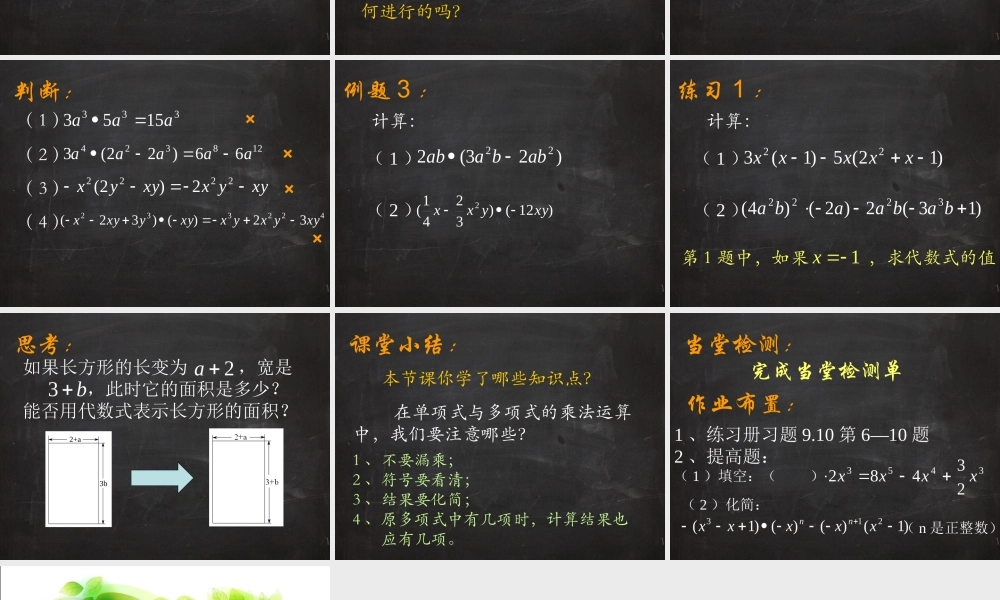 何进行的吗?
判断：
（ 1 ）3a³•5a³=15a³ ×
（ 2 ）3a⁴•(2a²-2a³)=6a⁸-6a¹² ×
（ 3 ）-x(2x²y²-xy)=-2x²y²-xy ×
（ 4 ）(-x²-2xy+3y³)•(-xy)=-x³y-2x²y²-3xy⁴
×
例题 3 ：
计算：
（ 1 ）2ab•(3a²b-2ab²)
（ 2 ）(1/4 x-2/3 x²y)•(-12xy)
练习 1 ：
计算：
（ 1 ）3x²(x-1)-5x(2x²+x-1)
（ 2 ）(4a²b)²·(-2a)-2a²b(-3a³b+1)
第 1 题中，如果 x=-1 ，求代数式的值
思考：
如果长方形的长变为 a+2 ，宽是
3+b，此时它的面积是多少？
能否用代数式表示长方形的面积？
2+a
3b
2+a
3+b
课堂小结：
本节课你学了哪些知识点？
在单项式与多项式的乘法运算
中，我们要注意哪些？
1 、不要漏乘；
2 、符号要看清；
3 、结果要化简；
4 、原多项式中有几项时，计算结果也
应有几项。
当堂检测：
完成当堂检测单
作业布置：
1 、练习册习题 9.10 第 6—10 题
2 、提高题：
（ 1 ）填空：（ ）·2x³=8x⁵-4x⁴+3/2 x³
（ 2 ）化简：
-(x³-x+1)•(-x)ⁿ-(-x)ⁿ⁺¹(x²-1)（ n 是正整数）